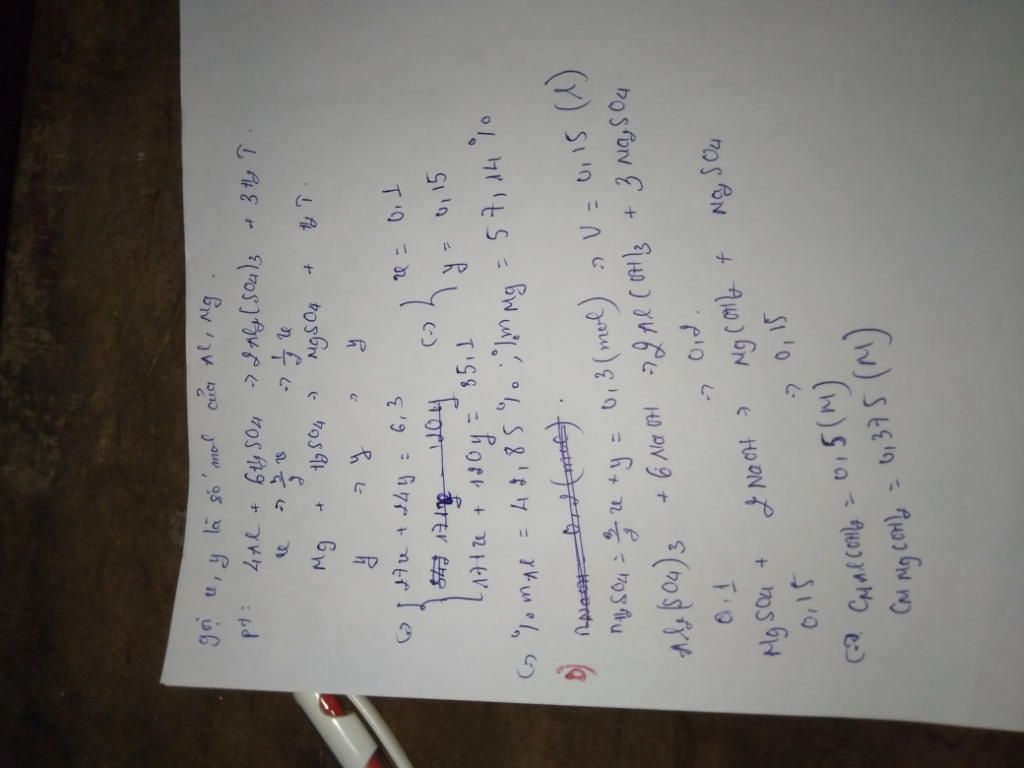 gọi x, y là số mol của Al, Mg.
pt: 4Al + 6H2SO4 → 2Al2(SO4)3 + 3H2↑.
x → 3/2x → 1/2x
Mg + H2SO4 → MgSO4 + H2↑.
y → y → y
(=) { 27x + 24y = 6,3
171x + 120y = 35,1 (=) { x = 0,1
y = 0,15
(=) %mAl = 42,85%; %mMg = 57,14%
b)
nH2SO4 = 3/2x + y = 0,3 (mol) → V = 0,15 (l)
Al2(SO4)3 + 6NaOH → 2Al(OH)3 + 3Na2SO4
0,1 → 0,2.
MgSO4 + 2NaOH → Mg(OH)2 + Na2SO4
0,15 → 0,15
(=) CMAl(OH)3 = 0,5 (M)
CMMg(OH)2 = 0,375 (M)